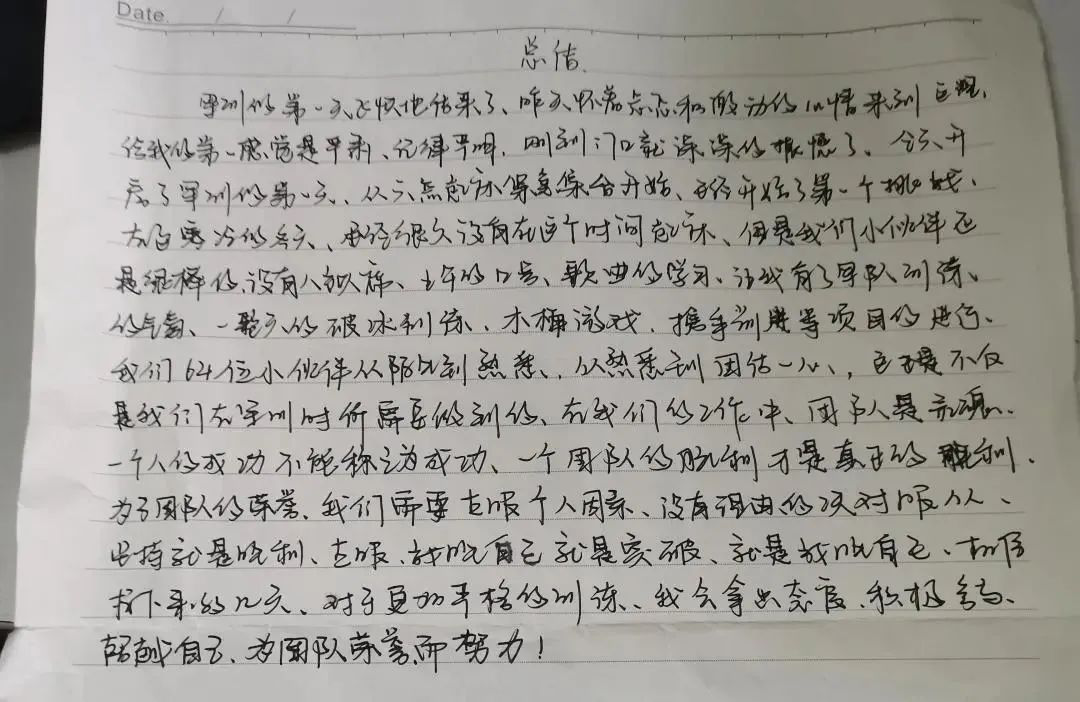 Date. / /
总结.
军训的第一天飞快地结束了、昨天怀着忐忑和激动的心情来到这里,
给我的第一感觉是严肃、纪律严明,刚到门口就深深的振憾了、今天开
启了军训的第一天、从六点起床紧急集合开始、已经开始了第一个挑战、
在这寒冷的冬天、已经很久没有在这个时间起床、但是我们小伙伴还
是很棒的,没有人缺席、上午的口号、歌曲的学习、让我有了军队训练、
的气氛、一整天的破冰训练、木桶游戏,携手前进等项目的进行、
我们64位小伙伴从陌生到熟悉、,从熟悉到团结一心、,这不仅
是我们在军训时所需要做到的、在我们的工作中、团队人是灵魂、
一个人的成功不能称之为成功、一个团队的胜利才是真正的胜利.
为了团队的荣誉、我们需要克服个人因素、没有理由的绝对服从、
坚持就是胜利、克服、战胜自己就是突破、就是战胜自己、相信
接下来的几天、对于更加严格的训练、我会拿出态度、积极参与、
超越自己、为团队荣誉而努力!